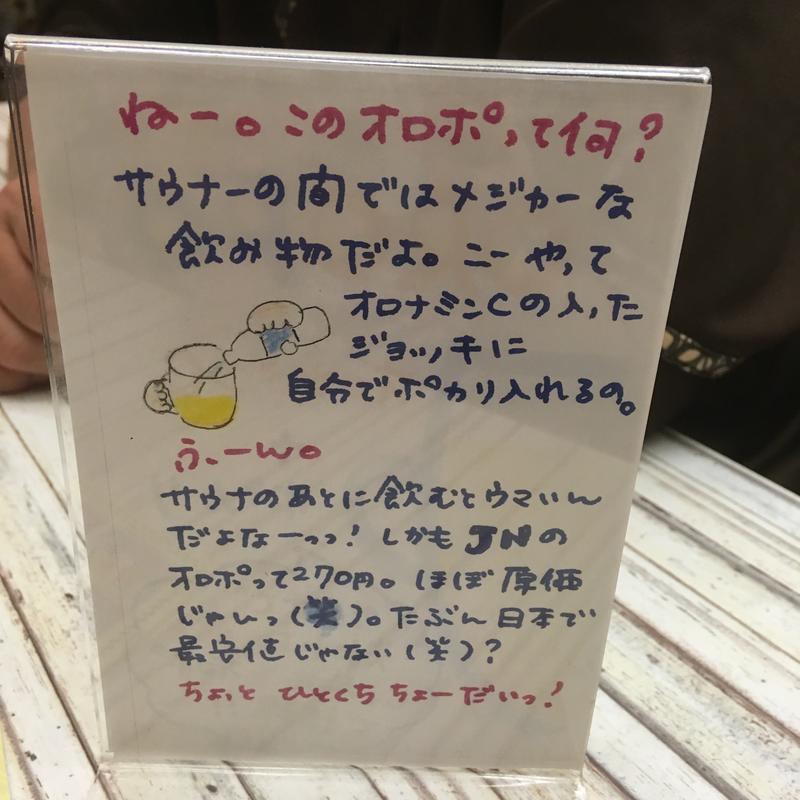 ねー。このオロポって何?
サウナーの間ではメジャーな
飲み物だよ。こーやって
オロナミンCの入った
ジョッキに
自分でポカリ入れるの。
ふーーん。
サウナのあとに飲むとウマいん
だよなーっっ! しかもJNの
オロポって270円。ほぼ原価
じゃいっ(笑)。たぶん日本で
最安値じゃない(笑)?
ちょっと ひとくち ちょーだいっ!